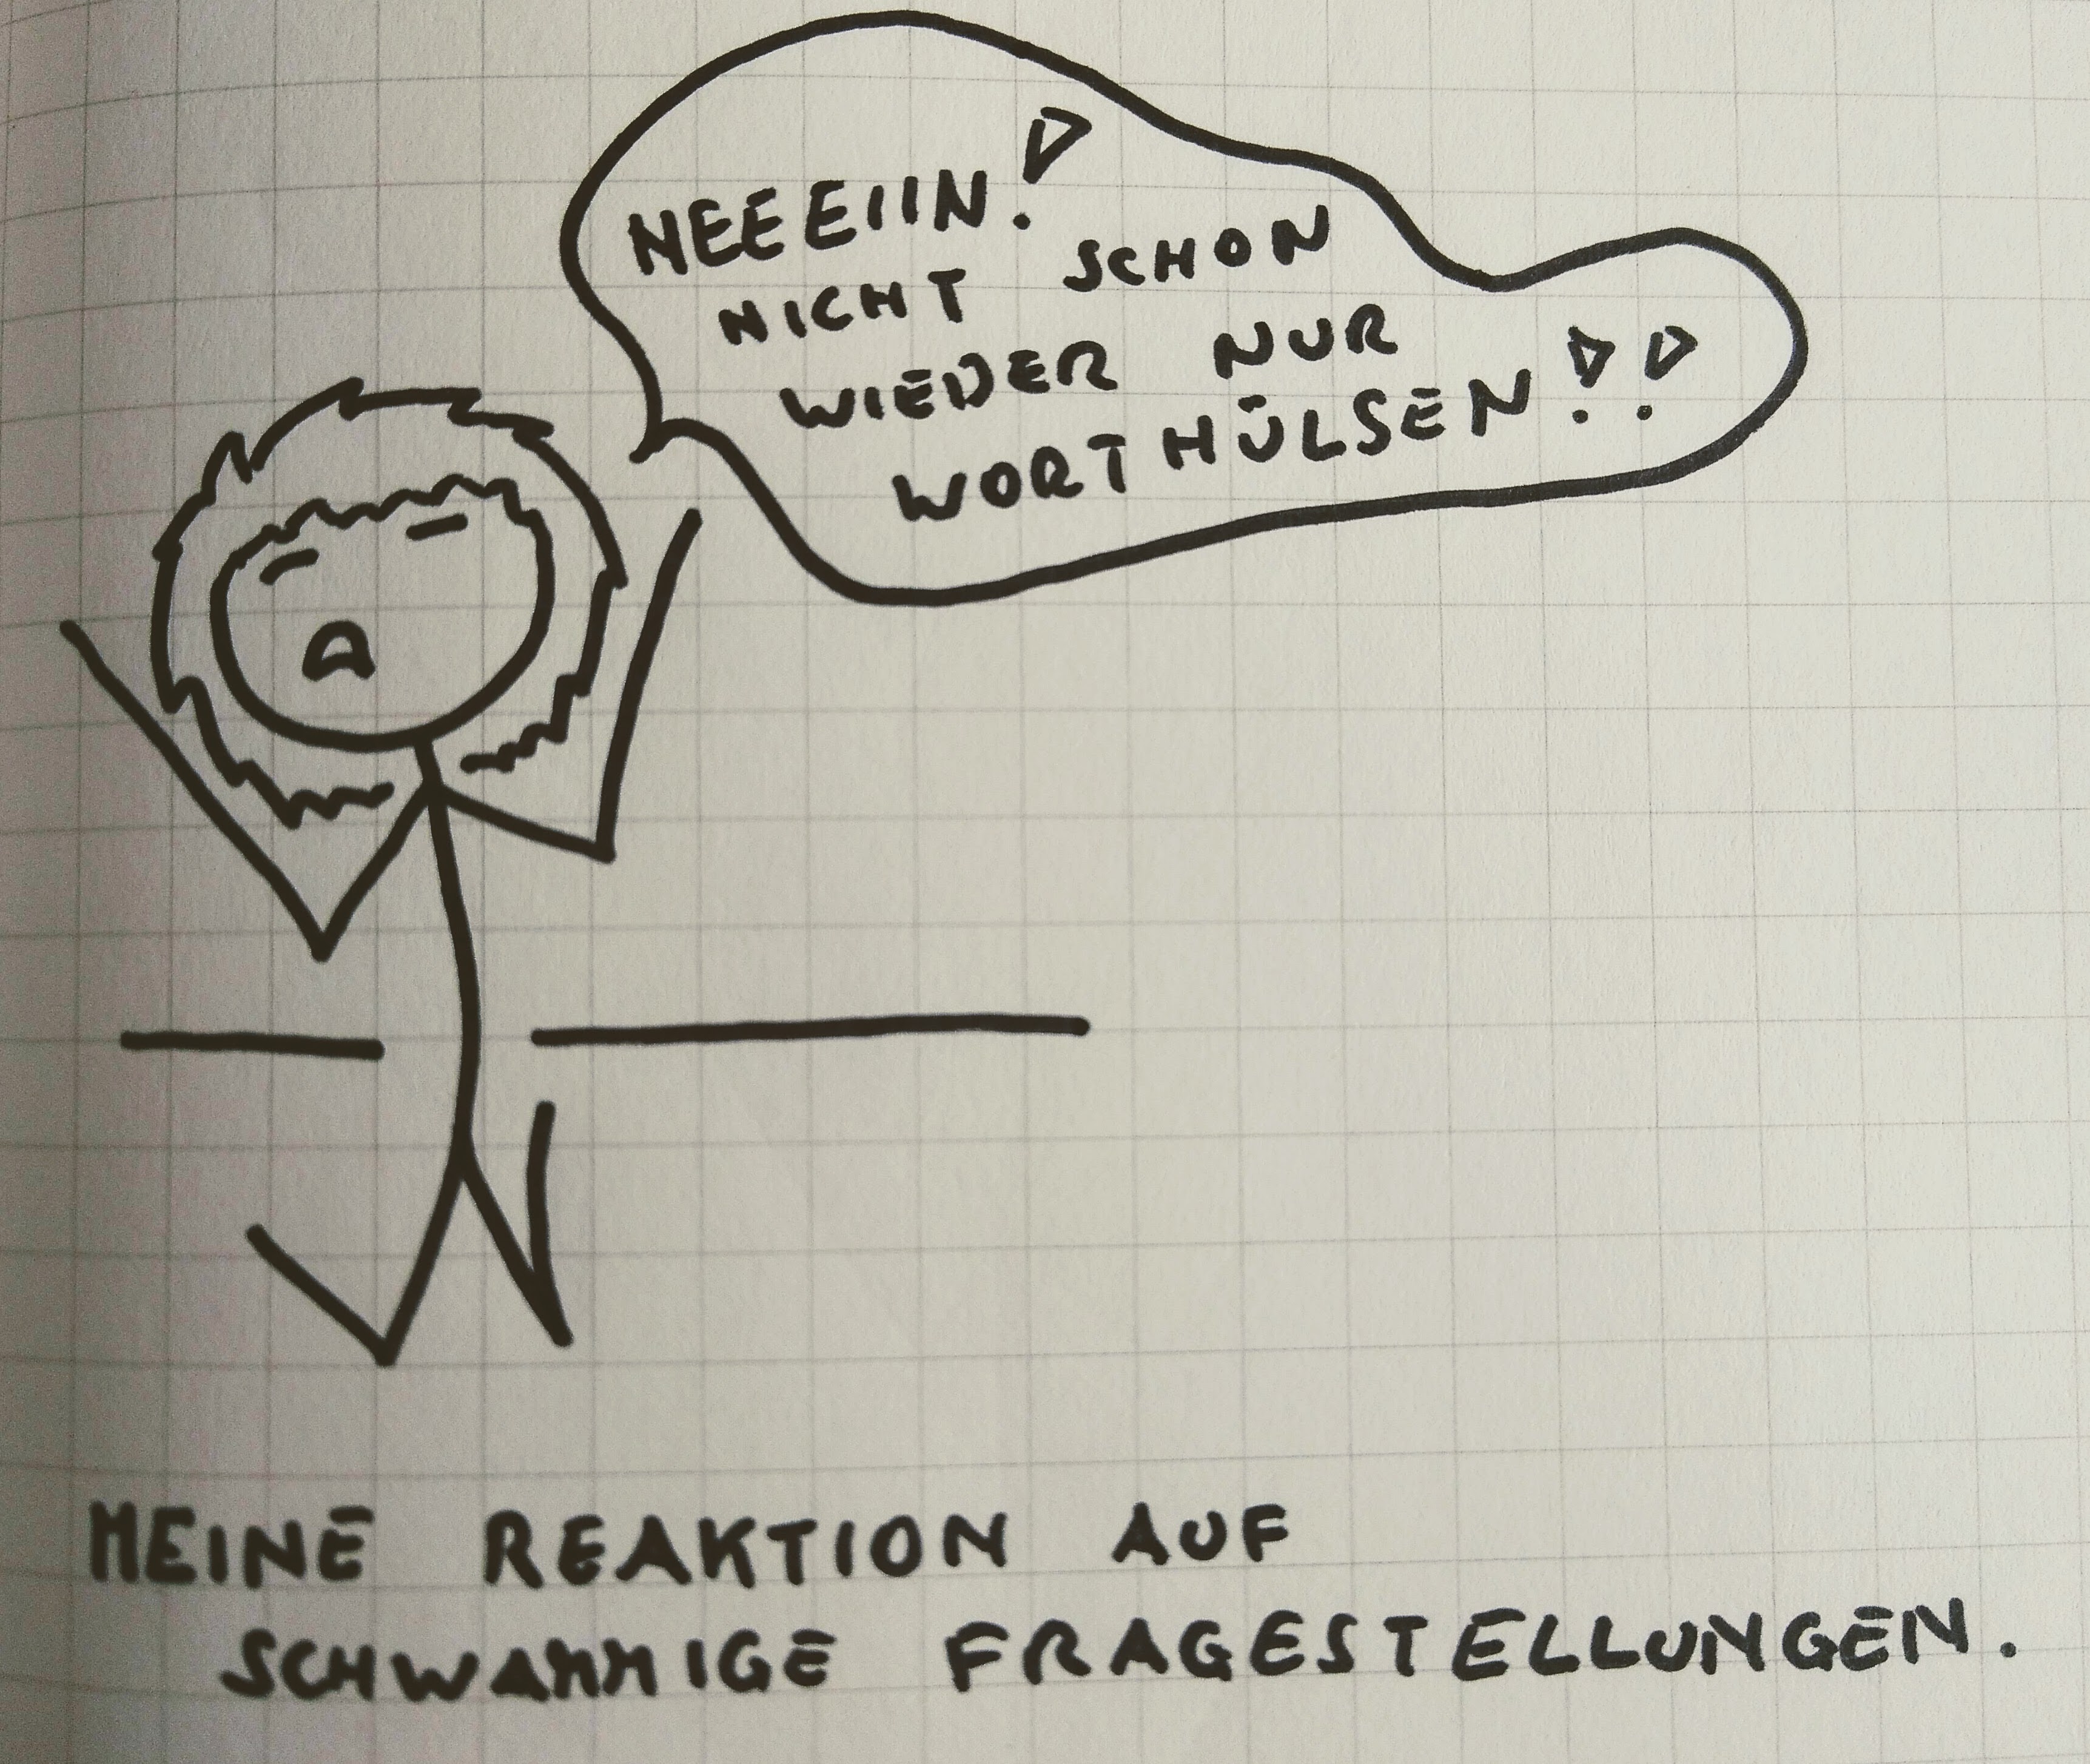 NEEEIIN!
NICHT SCHON
WIEDER NUR
WORTHÜLSEN!!
MEINE REAKTION AUF
SCHWAMMIGE FRAGESTELLUNGEN.